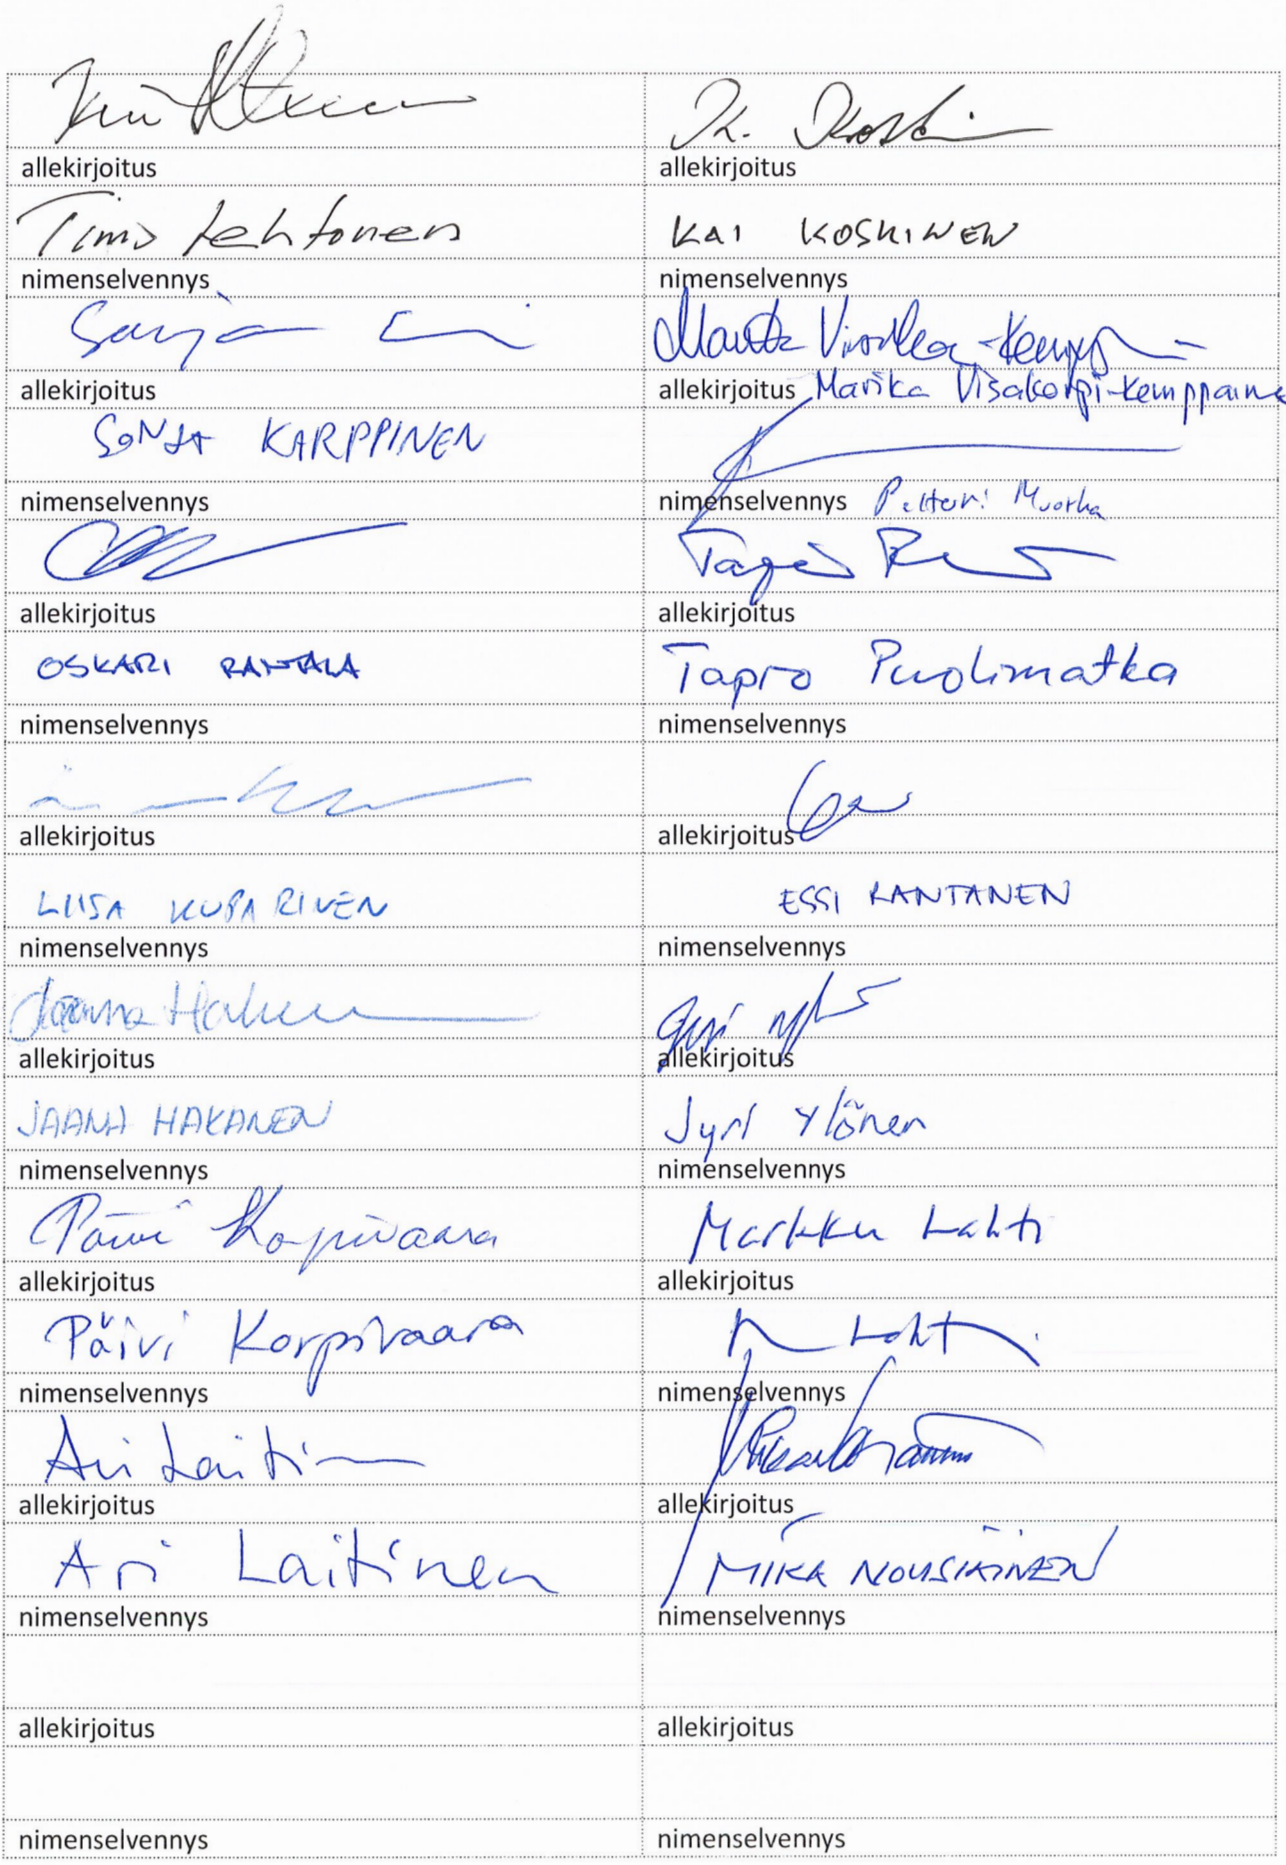 K. Koski
allekirjoitus allekirjoitus
Timo Lehtonen KAI KOSKINEN
nimenselvennys nimenselvennys
allekirjoitus allekirjoitus Marika Visakorpi-Kemppaine
SONJA KARPPINEN
nimenselvennys nimenselvennys Petteri Muorha
allekirjoitus allekirjoitus
OSKARI RANTALA Tapio Puolimatka
nimenselvennys nimenselvennys
allekirjoitus allekirjoitus
LIISA KUPARINEN ESSI RANTANEN
nimenselvennys nimenselvennys
Jaana Hakanen
allekirjoitus allekirjoitus
JAANA HAKANEN Jyri Ylönen
nimenselvennys nimenselvennys
Päivi Korpivaara Markku Lahti
allekirjoitus allekirjoitus
Päivi Korpivaara M Lahti
nimenselvennys nimenselvennys
Ari Laitinen
allekirjoitus allekirjoitus
Ari Laitinen MIKA NOUSIAINEN
nimenselvennys nimenselvennys
allekirjoitus allekirjoitus
nimenselvennys nimenselvennys